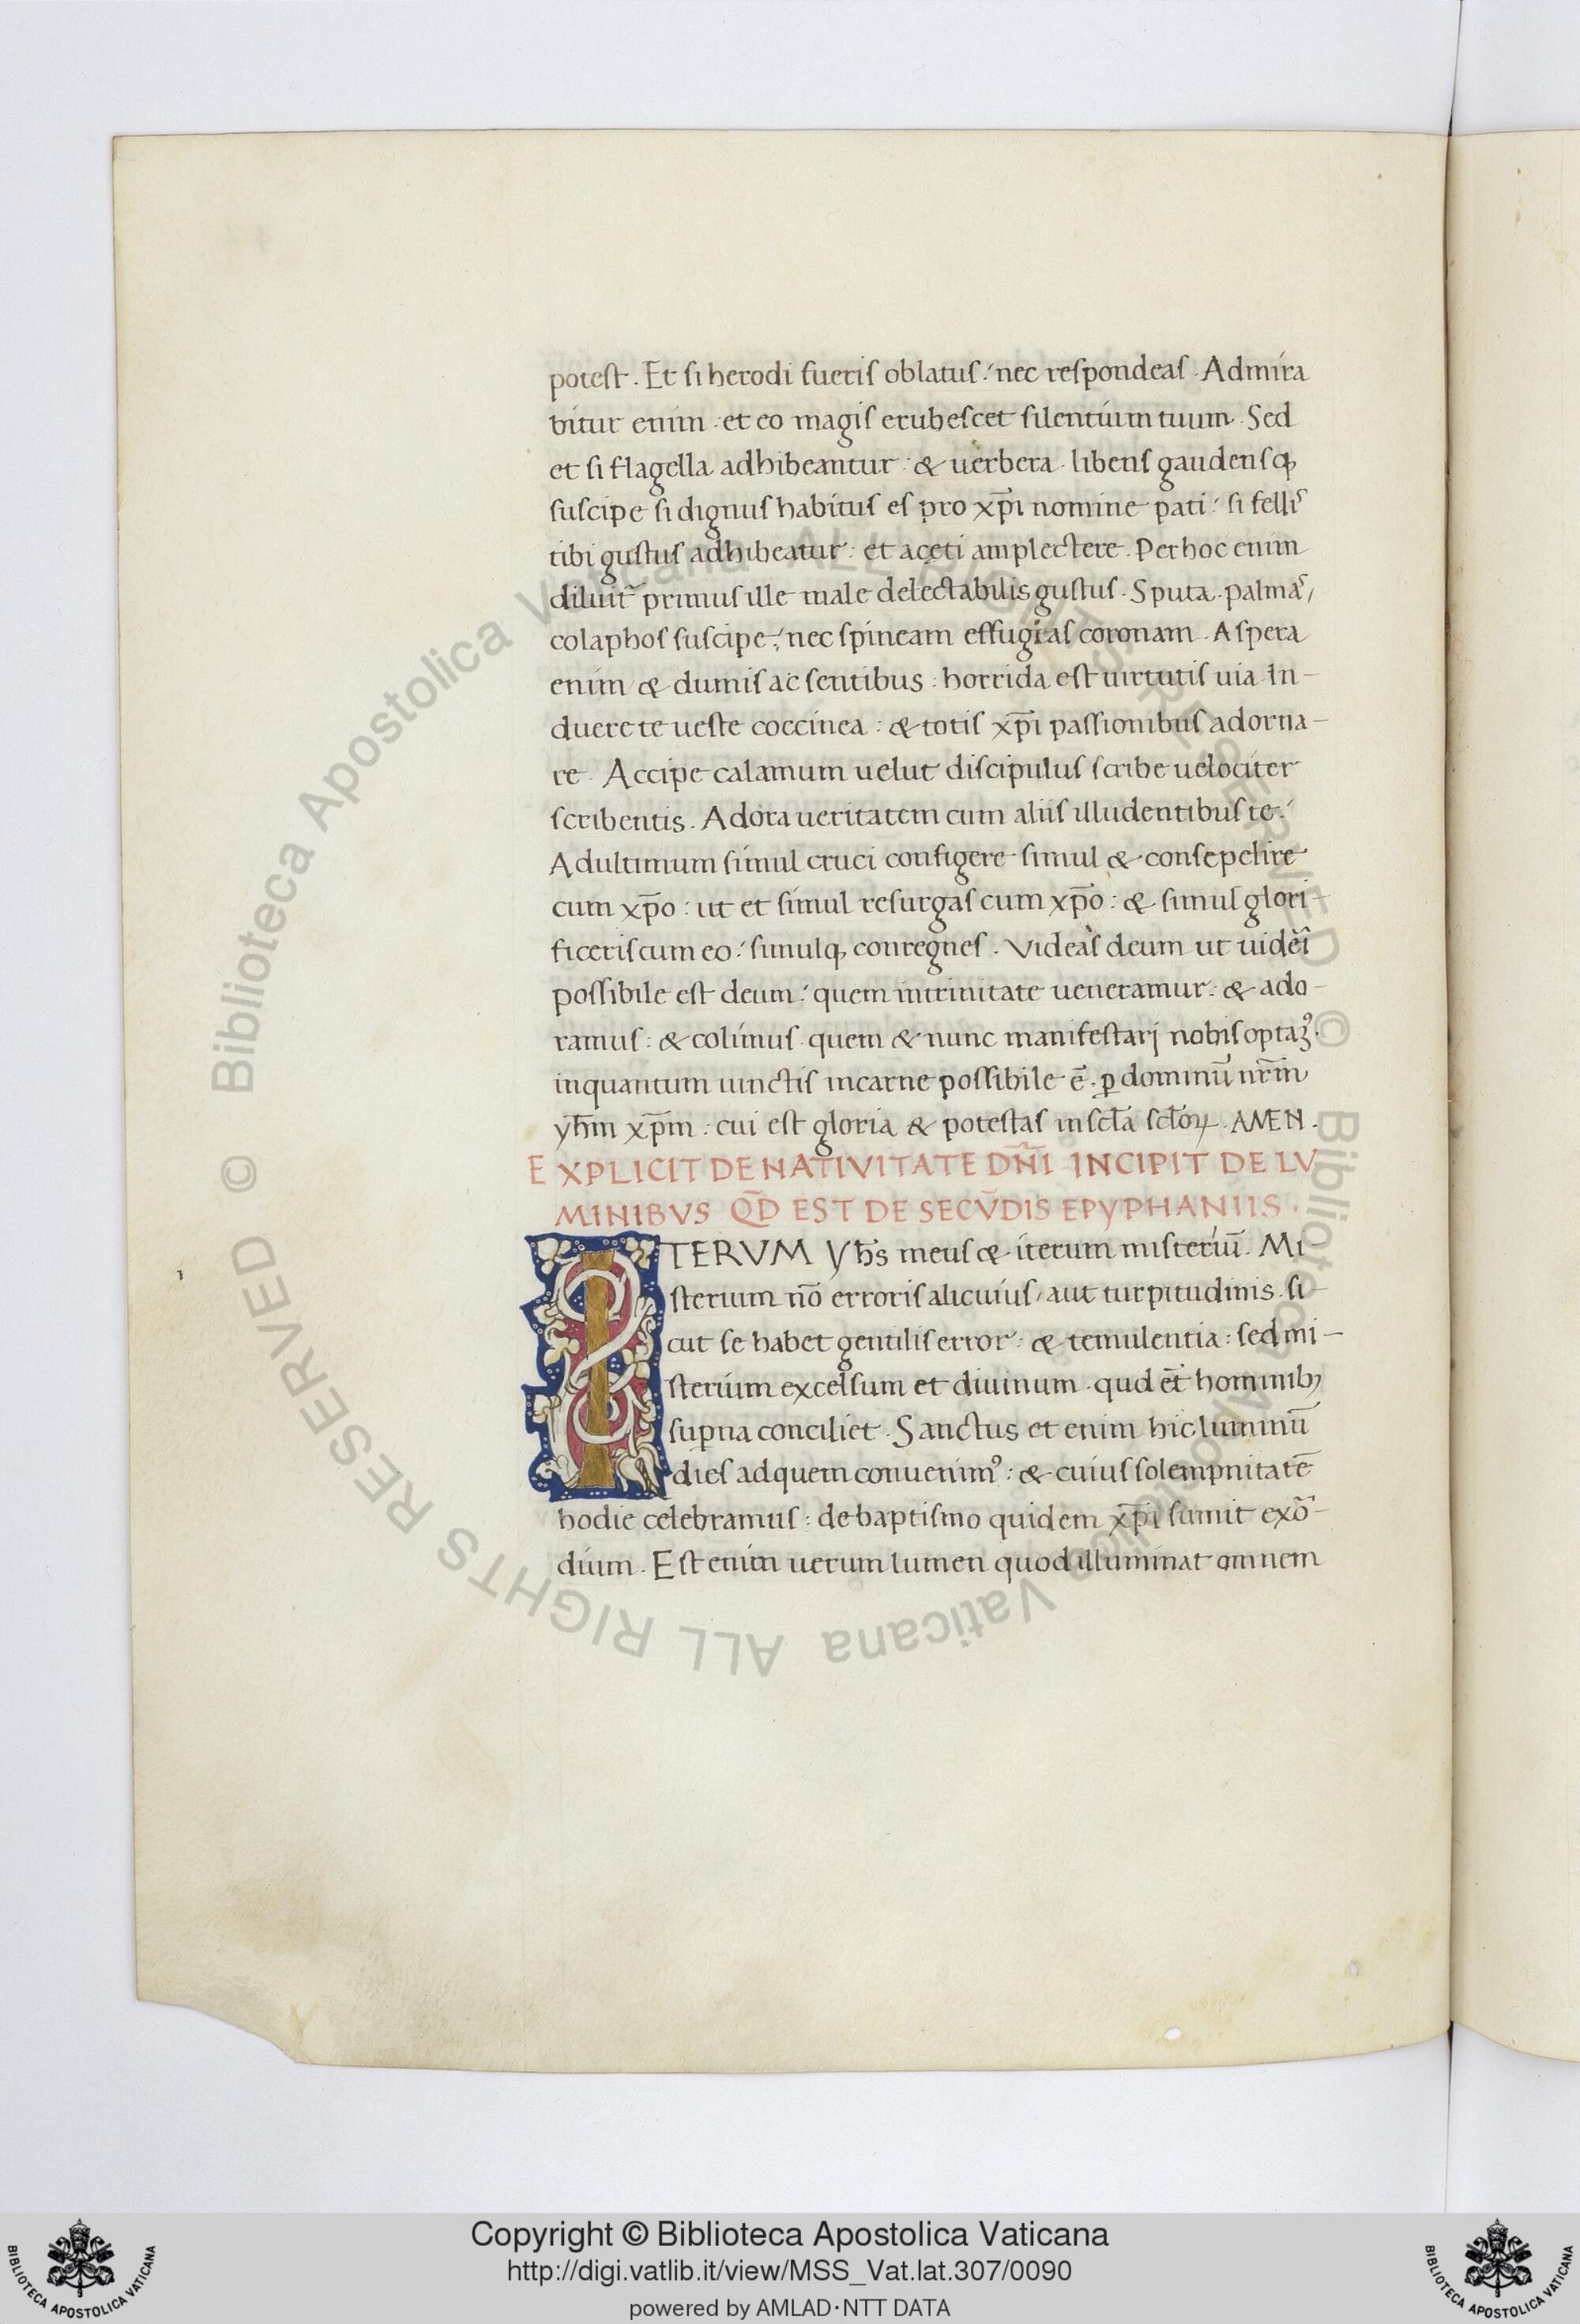 potest. Et si herodi fueris oblatus: nec respondeas. Admira
bitur enim: et eo magis erubescet silentium tuum. Sed
et si flagella adhibeantur: & uerbera libens gaudensq;
suscipe si dignus habitus es pro xp̄i nomine pati: si fellis
tibi gustus adhibeatur: et aceti amplectere. Per hoc enim
diluit᷑ primus ille male delectabilis gustus. Sputa. palmas,
colaphos suscipe: nec spineam effugias coronam. Aspera
enim & dumis ac sentibus: horrida est uirtutis uia. In-
duere te ueste coccinea: & totis xp̄i passionibus adorna-
re. Accipe calamum uelut discipulus scribe uelociter
scribentis. Adora ueritatem cum aliis illudentibus te:
Ad ultimum simul cruci configere simul & consepelire
cum xp̄o: ut et simul resurgas cum xp̄o: & simul glori-
ficeris cum eo: simulq; conregnes. Videas deum ut uideri
possibile est deum: quem in trinitate ueneramur: & ado-
ramus: & colimus quem & nunc manifestari nobis optamꝰ.
inquantum uinctis in carne possibile ē. ꝑ dominū nr̄m
yħm xp̄m: cui est gloria & potestas in scl̄a scl̄oꝝ. AMEN.
EXPLICIT DE NATIVITATE DN̄I INCIPIT DE LV
MINIBVS QD̄ EST DE SECV̄DIS EPYPHANIIS.
ITERVM Yħs meus & iterum misteriū. Mi-
sterium nō erroris alicuius, aut turpitudinis. si-
cut se habet gentilis error: & temulentia: sed mi-
sterium excelsum et diuinum. qud et̄ hominibꝫ
supna conciliet. Sanctus et enim hic luminū
dies ad quem conuenimꝰ: & cuius solempnitatē
hodie celebramus: de baptismo quidem xp̄i sumit exō-
dium. Est enim uerum lumen quod illuminat omnem
© Biblioteca Apostolica Vaticana ALL RIGHTS RESERVED © Biblioteca Apostolica Vaticana ALL RIGHTS RESERVED
Copyright © Biblioteca Apostolica Vaticana
http://digi.vatlib.it/view/MSS_Vat.lat.307/0090
powered by AMLAD·NTT DATA
BIBLIOTECA APOSTOLICA VATICANA
BIBLIOTECA APOSTOLICA VATICANA